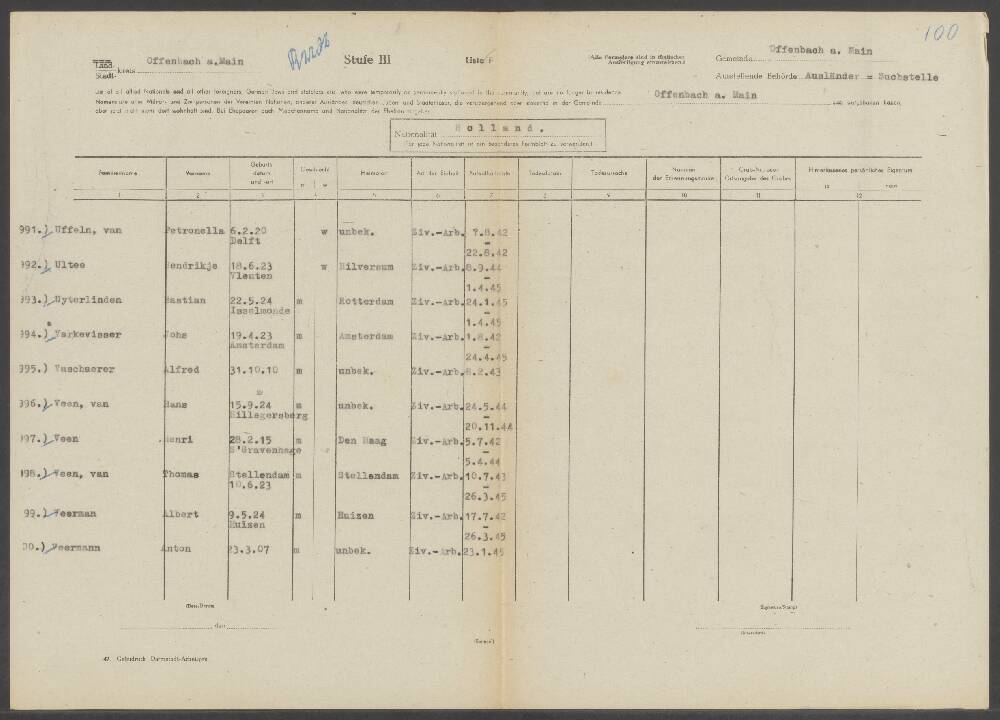 100
Land-
Stadt- kreis Offenbach a.Main
Stufe III
Liste F
(Alle Formulare sind in fünffacher Ausfertigung einzureichen.)
Gemeinde Offenbach a. Main
Ausstellende Behörde Ausländer = Suchstelle
List of all allied Nationals and all other foreigners, German Jews and stateless etc. who were temporarily or permanently stationed in the community, but are no longer in residence.
Namensliste aller Militär- und Zivilpersonen der Vereinten Nationen, anderer Ausländer, deutscher Juden und Staatenloser, die vorübergehend oder dauernd in der Gemeinde Offenbach a. Main sich aufgehalten haben,
aber jetzt nicht mehr dort wohnhaft sind. Bei Ehepaaren auch Mädchenname und Nationalität der Ehefrau angeben.
Nationalität Holland.
(Für jede Nationalität ist ein besonderes Formblatt zu verwenden.)
Familienname Vorname Geburts datum und -ort Geschlecht m w Heimatort Art der Einheit Aufenthaltszeit Todesdatum Todesursache Nummer der Erkennungsmarke Grab-Nr. oder Ortsangabe des Grabes Hinterlassenes persönliches Eigentum ja nein
1 2 3 4 5 6 7 8 9 10 11 12
991.) Uffeln, van Petronella 6.2.20 w unbek. Ziv.-Arb. 7.8.42
Delft -
22.8.42
992.) Ultee Hendrikje 18.6.23 w Hilversum Ziv.-Arb. 8.9.44
Vleuten -
1.4.45
993.) Uyterlinden Bastian 22.5.24 m Rotterdam Ziv.-Arb. 24.1.45
Isselmonde -
1.4.45
994.) Varkevisser Johs 19.4.23 m Amsterdam Ziv.-Arb. 1.8.42
Amsterdam -
24.4.45
995.) Vaschaerer Alfred 31.10.10 m unbek. Ziv.-Arb. 8.2.43
996.) Veen, van Hans 15.9.24 m unbek. Ziv.-Arb. 24.5.44
Hillegersberg -
20.11.44
997.) Veen Henri 28.2.15 m Den Haag Ziv.-Arb. 5.7.42
S'Gravenhage -
5.4.44
998.) Veen, van Thomas Stellendam m Stellendam Ziv.-Arb. 10.7.43
10.6.23 -
26.3.45
99.) Veerman Albert 9.5.24 m Huizen Ziv.-Arb. 17.7.42
Huizen -
26.3.45
00.) Veermann Anton 23.3.07 m unbek. Ziv.-Arb. 23.1.45
(Ort, Datum)
den
(Signature/Stamp)
(Unterschrift)
47 Gebrdruck Darmstadt-Arheilgen